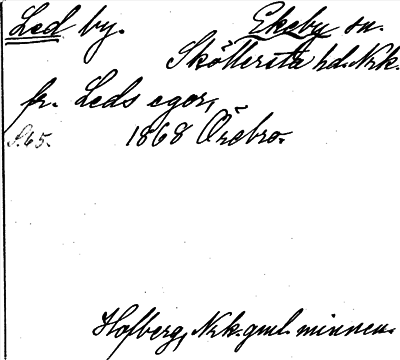 Led by. Ekeby sn.
Sköllersta hd. Nrk.
fr. Leds egor,
S.65. 1868 Örebro.
Hofberg, Nrk. gml. minnen.